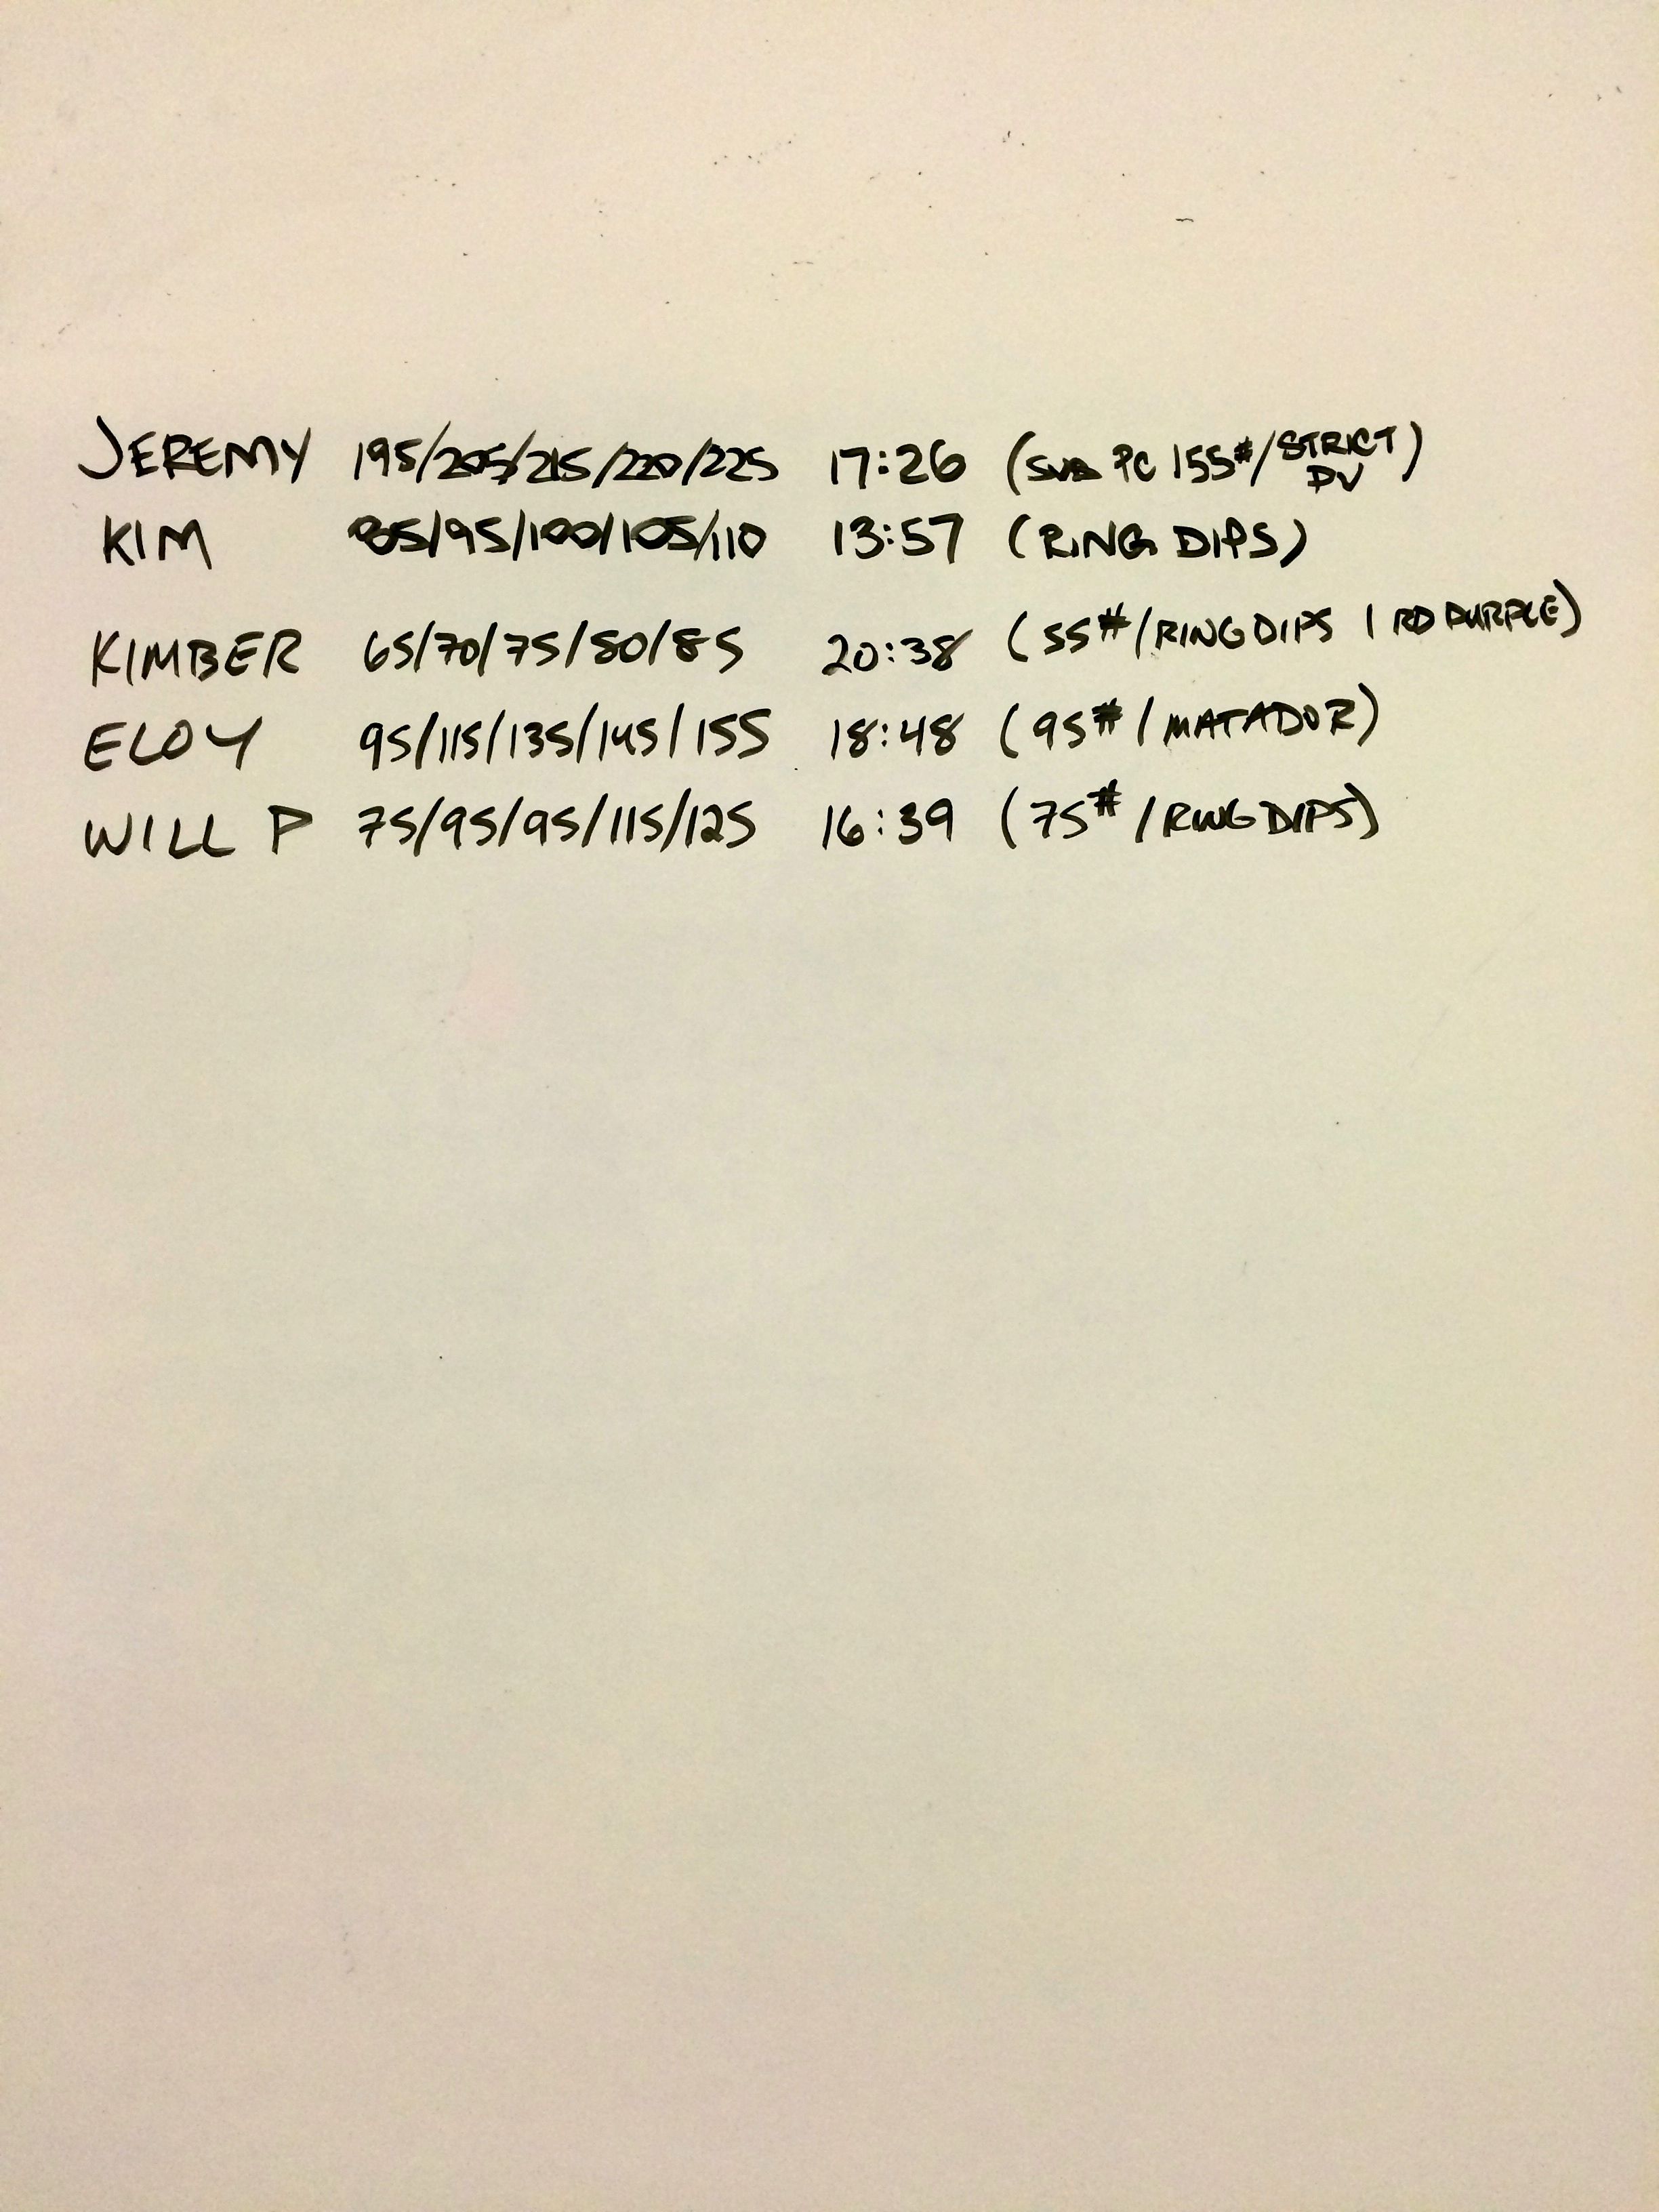 JEREMY 195/205/215/220/225 17:26 (SUB PC 155#/STRICT PU)
KIM 85/95/100/105/110 13:57 (RING DIPS)
KIMBER 65/70/75/80/85 20:38 (55#/RING DIPS 1 RD PURPLE)
ELOY 95/115/135/145/155 18:48 (95#/MATADOR)
WILL P 75/95/95/115/125 16:39 (75#/RING DIPS)